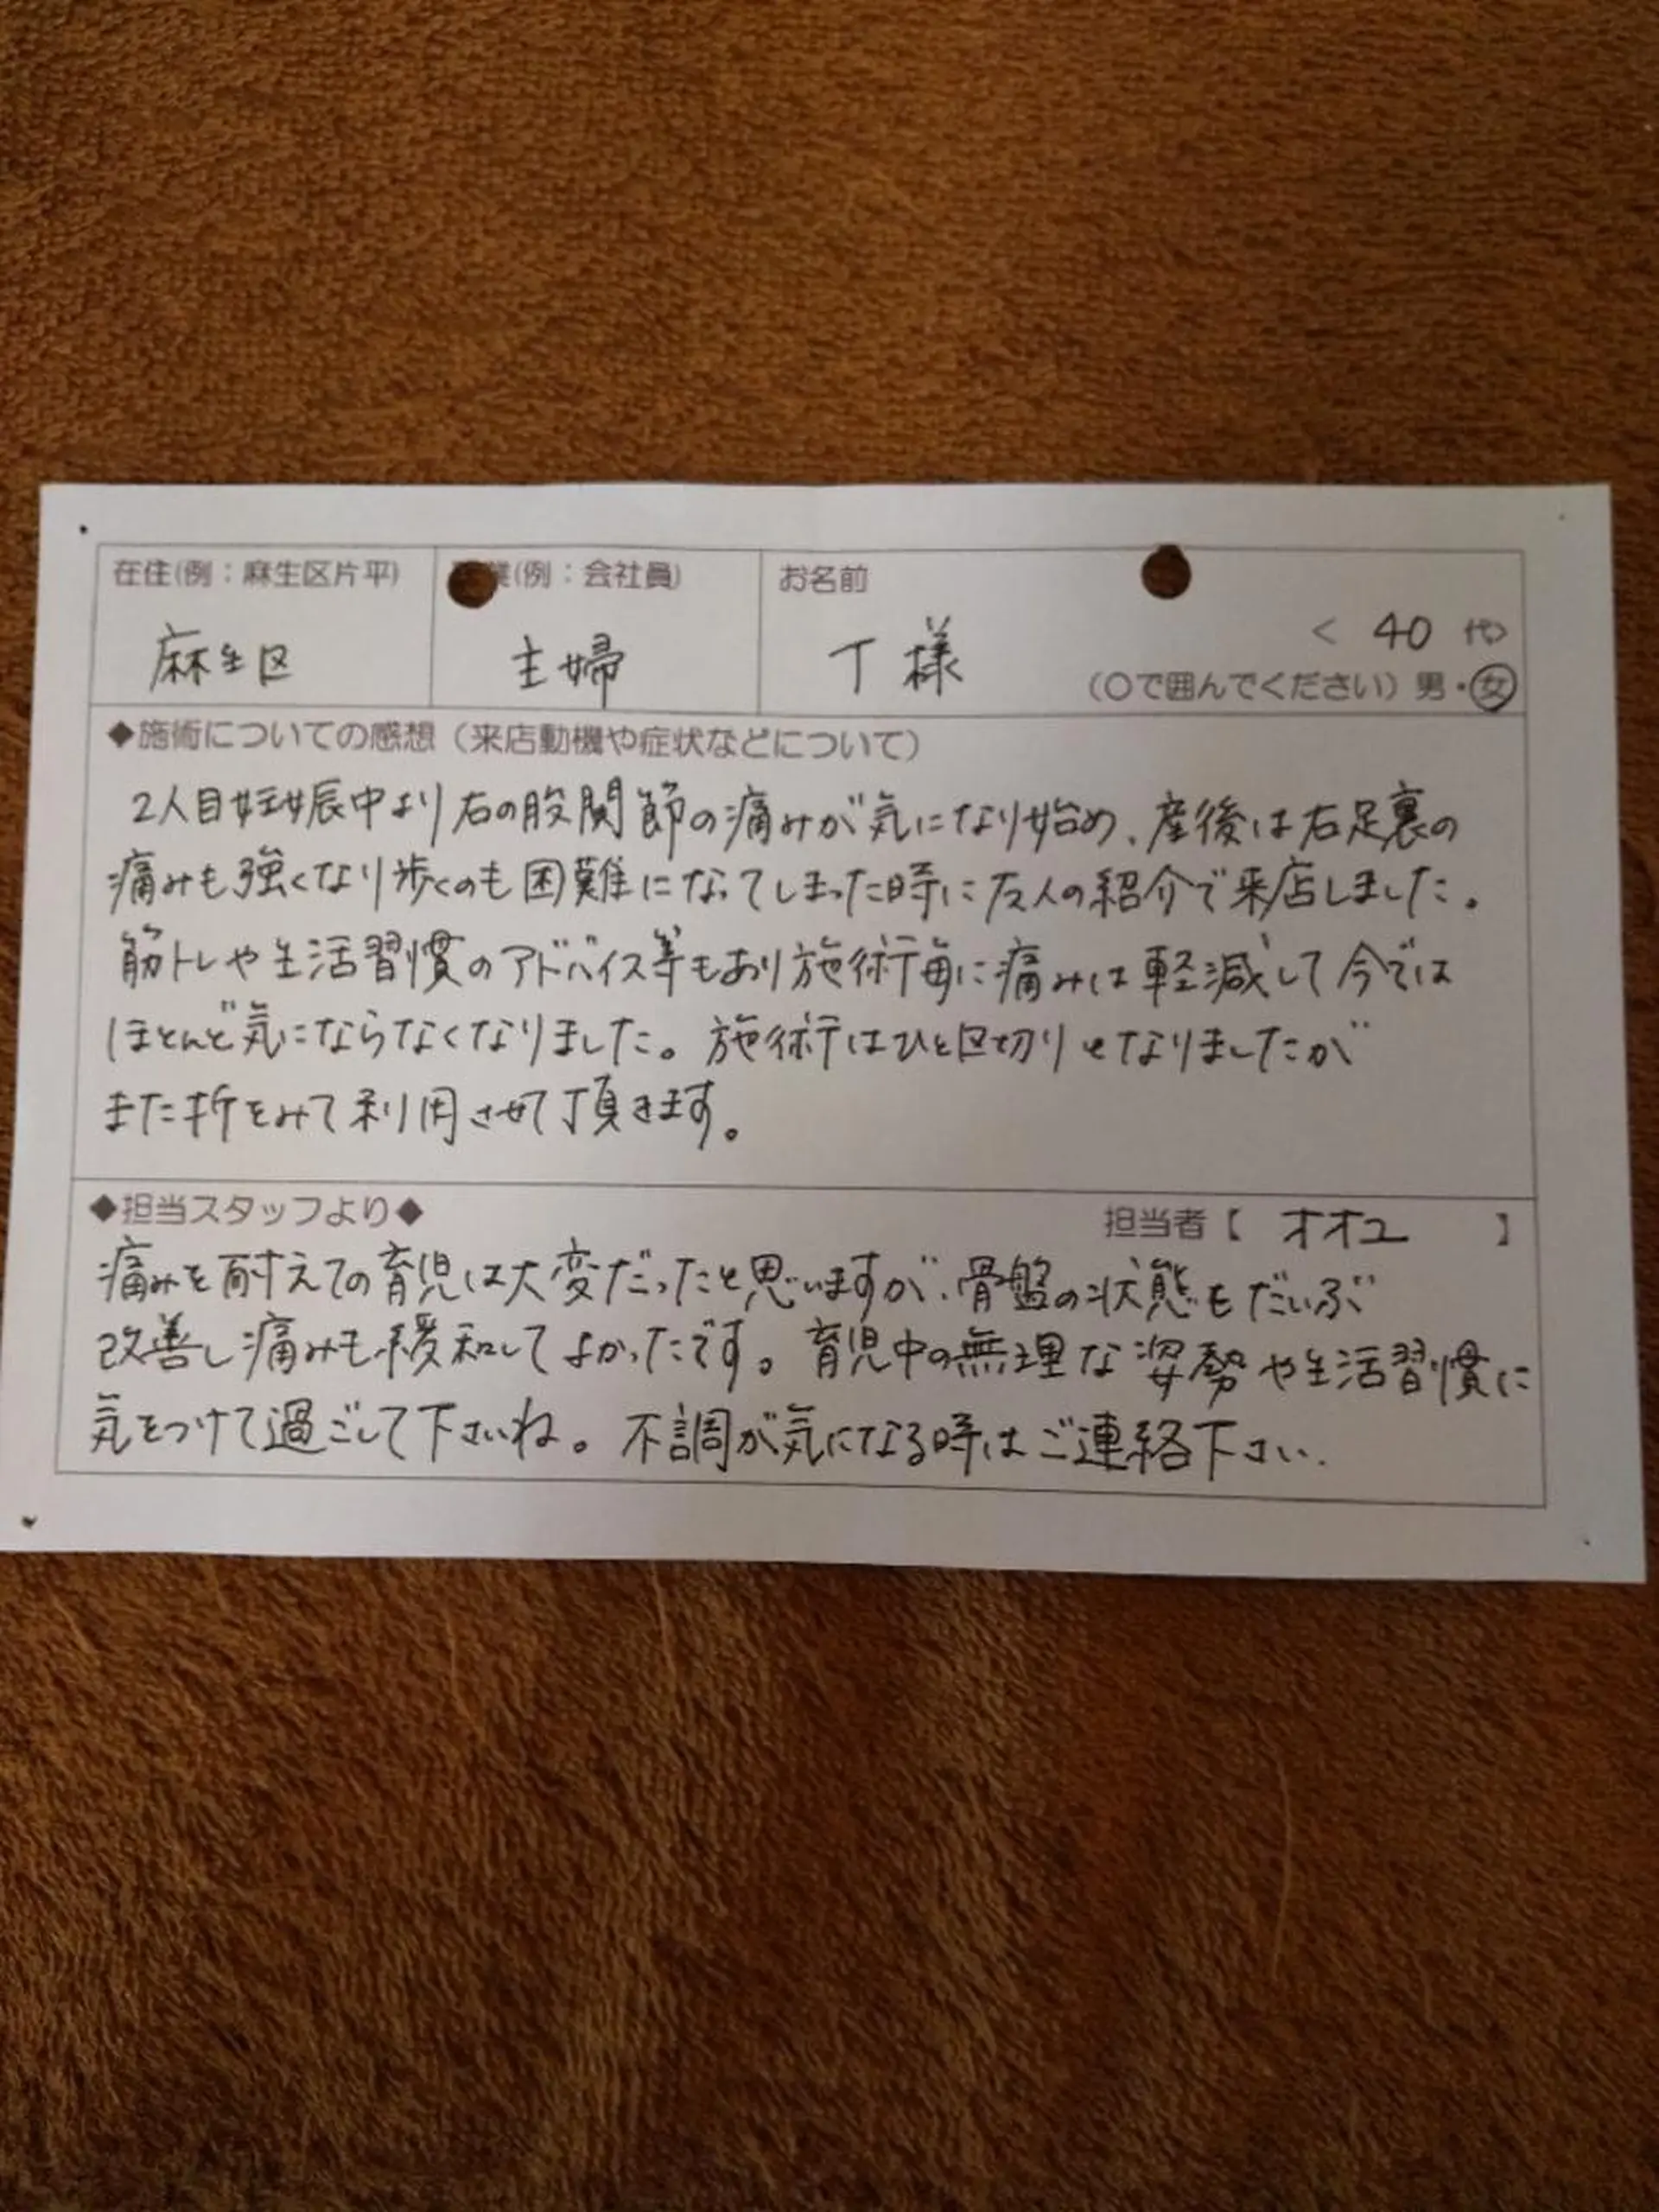 在住(例：麻生区片平)
麻生区
業(例：会社員)
主婦
お名前
T 様
< 40 代>
(○で囲んでください) 男・女
◆施術についての感想（来店動機や症状などについて）
2人目妊娠中より右の股関節の痛みが気になり始め、産後は右足裏の
痛みも強くなり歩くのも困難になってしまった時に友人の紹介で来店しました。
筋トレや生活習慣のアドバイス等もあり施術毎に痛みは軽減して今では
ほとんど気にならなくなりました。施術はひと区切りとなりましたが
また折をみて利用させて頂きます。
◆担当スタッフより◆
担当者【 オオユ 】
痛みを耐えての育児は大変だったと思いますが、骨盤の状態もだいぶ
改善し痛みも緩和してよかったです。育児中の無理な姿勢や生活習慣に
気をつけて過ごして下さいね。不調が気になる時はご連絡下さい.